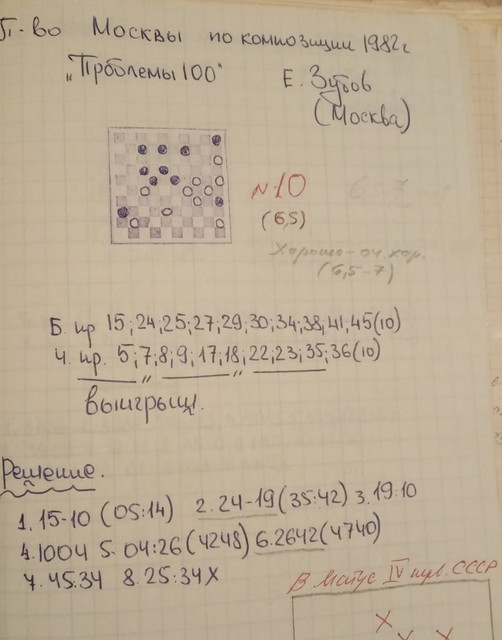 П-во Москвы по композиции 1982г
„Прблемы 100“ Е. Зубов
(Москва)
№10
(6,5)
Хорошо-оч хор.
(6,5-7)
Б. пр 15;24;25;27;29;30;34;38;41;45(10)
Ч. пр. 5;7;8;9;17;18;22;23;35;36(10)
Выигрыш.
Решение.
1.15-10 (05:14) 2.24-19(35:42) 3.19:10
4.1004 5.04:26(4248) 6.2642(4740)
7.45:34 8.25:34X
В Матч IV СССР